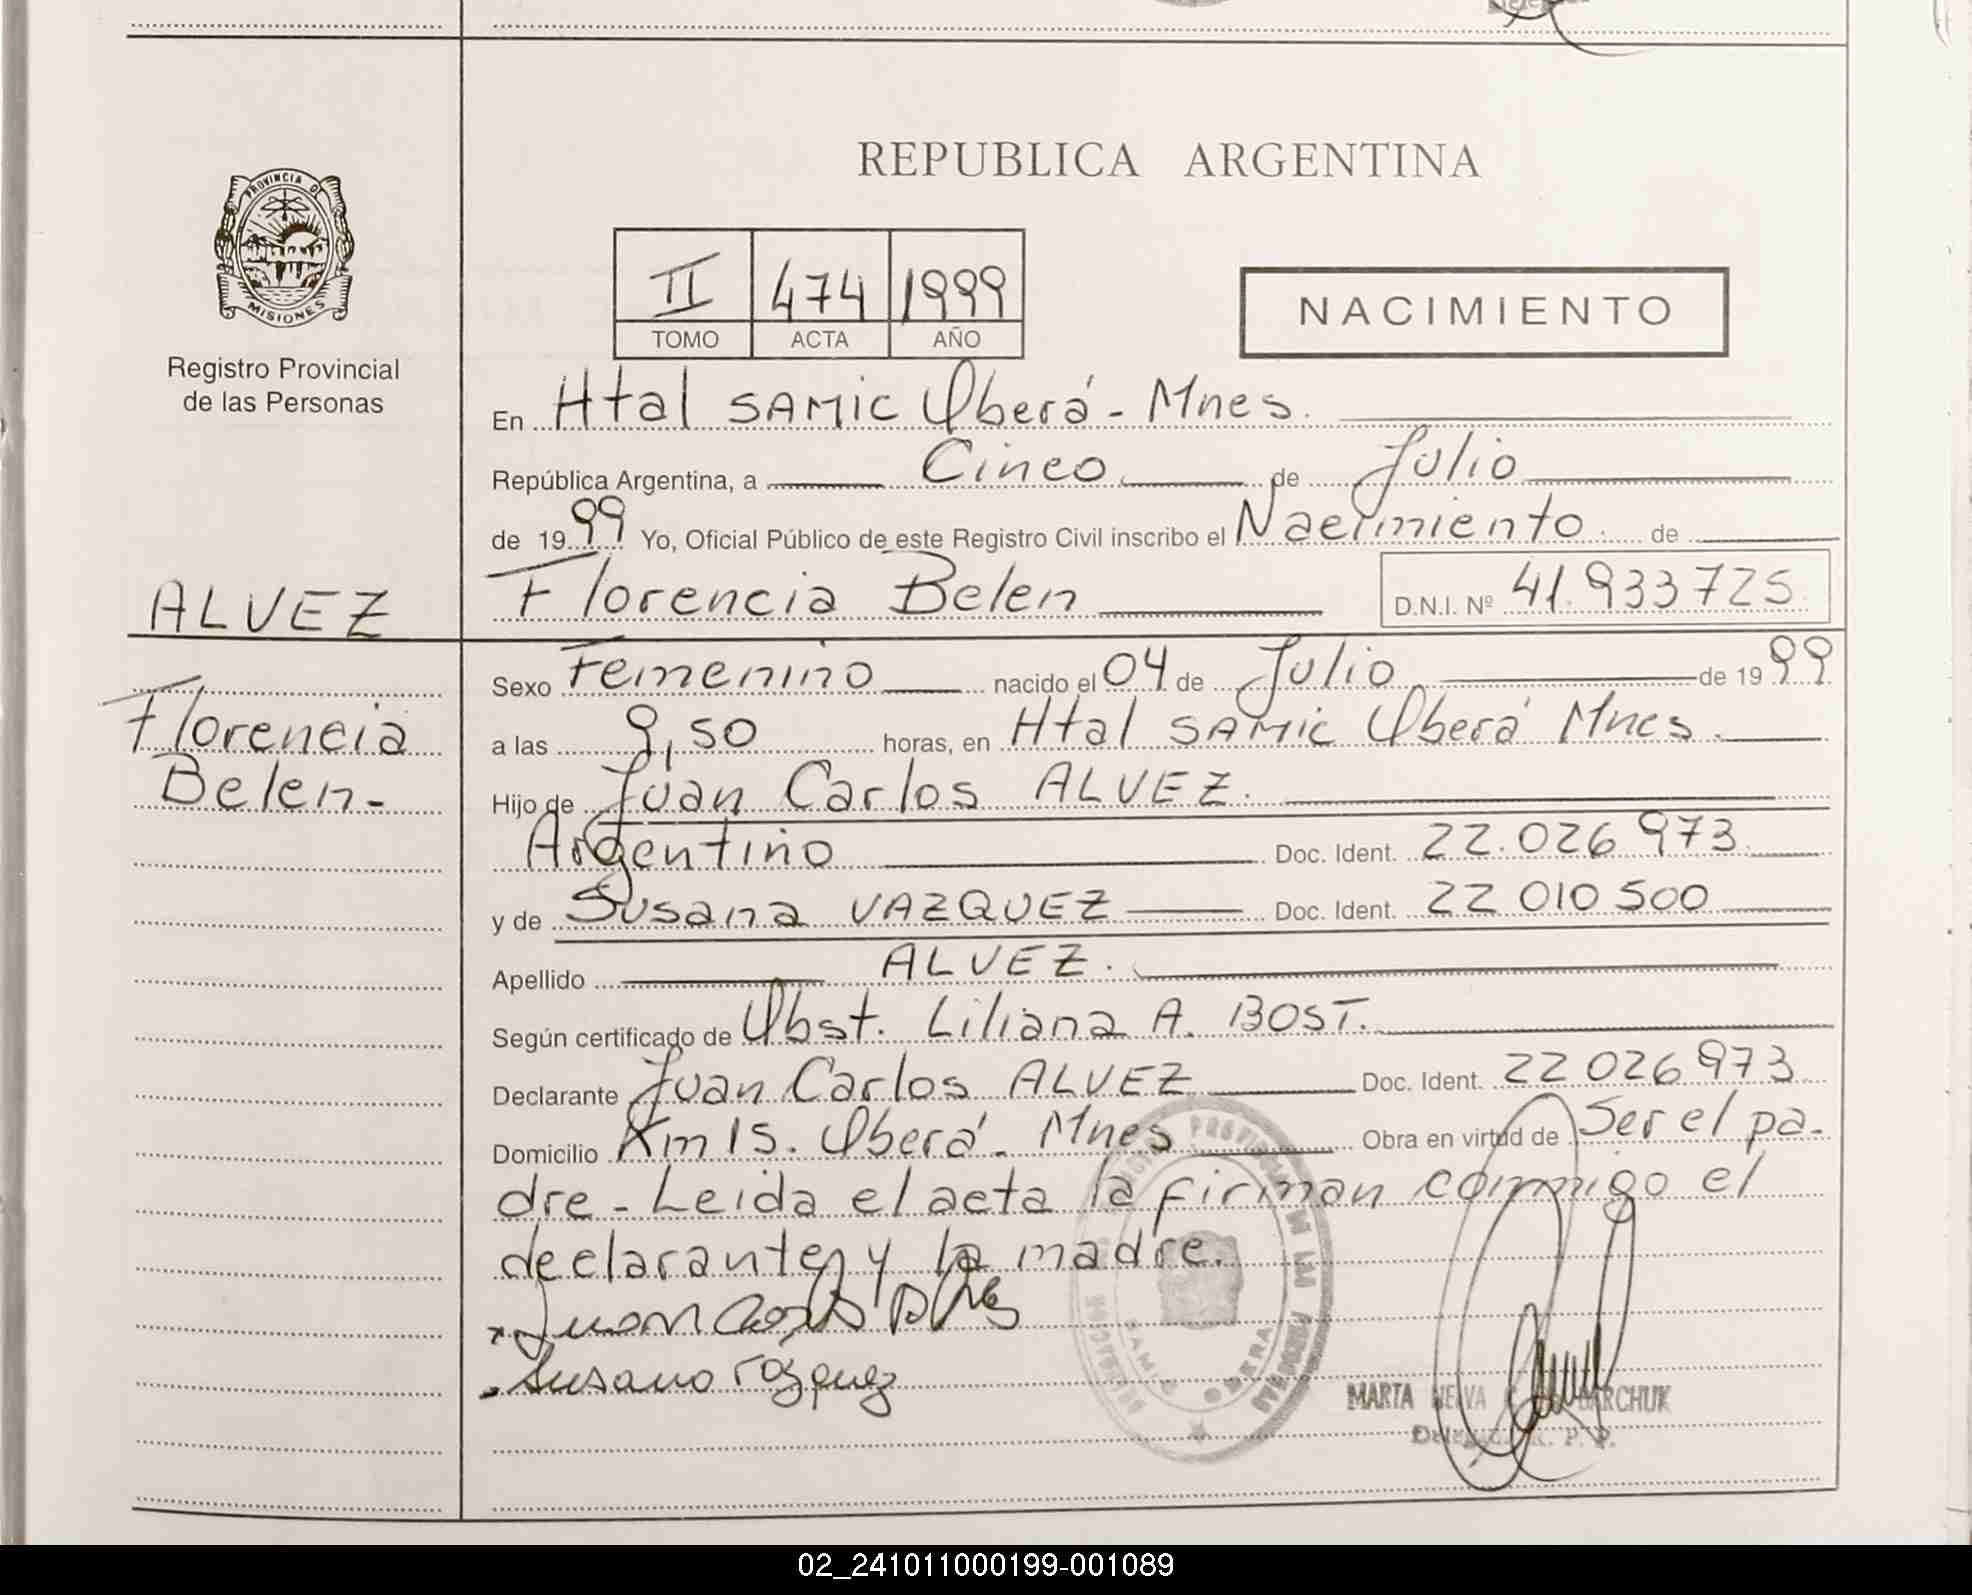 PROVINCIA D
MISIONES
Registro Provincial
de las Personas
REPUBLICA ARGENTINA
II 474 1999
TOMO ACTA AÑO
NACIMIENTO
En Htal SAMIC Oberá - Mnes.
República Argentina, a Cinco de Julio
de 1999 Yo, Oficial Público de este Registro Civil inscribo el Nacimiento de
ALVEZ
Florencia Belen D.N.I. Nº 41.933725
Sexo Femenino nacido el 04 de Julio de 1999
Florencia
Belen-
a las 9,50 horas, en Htal SAMIC Oberá Mnes.
Hijo de Juan Carlos ALVEZ.
Argentino Doc. Ident. 22.026973
y de Susana VAZQUEZ Doc. Ident. 22 010 500
Apellido ALVEZ.
Según certificado de Obst. Liliana A. BOST.
Declarante Juan Carlos ALVEZ Doc. Ident. 22 026973
Domicilio Km 15. Oberá - Mnes Obra en virtud de Ser el pa-
dre - Leida el acta la firman conmigo el
declarante y la madre.
Juan Carlos
Susana
MARTA
02_241011000199-001089